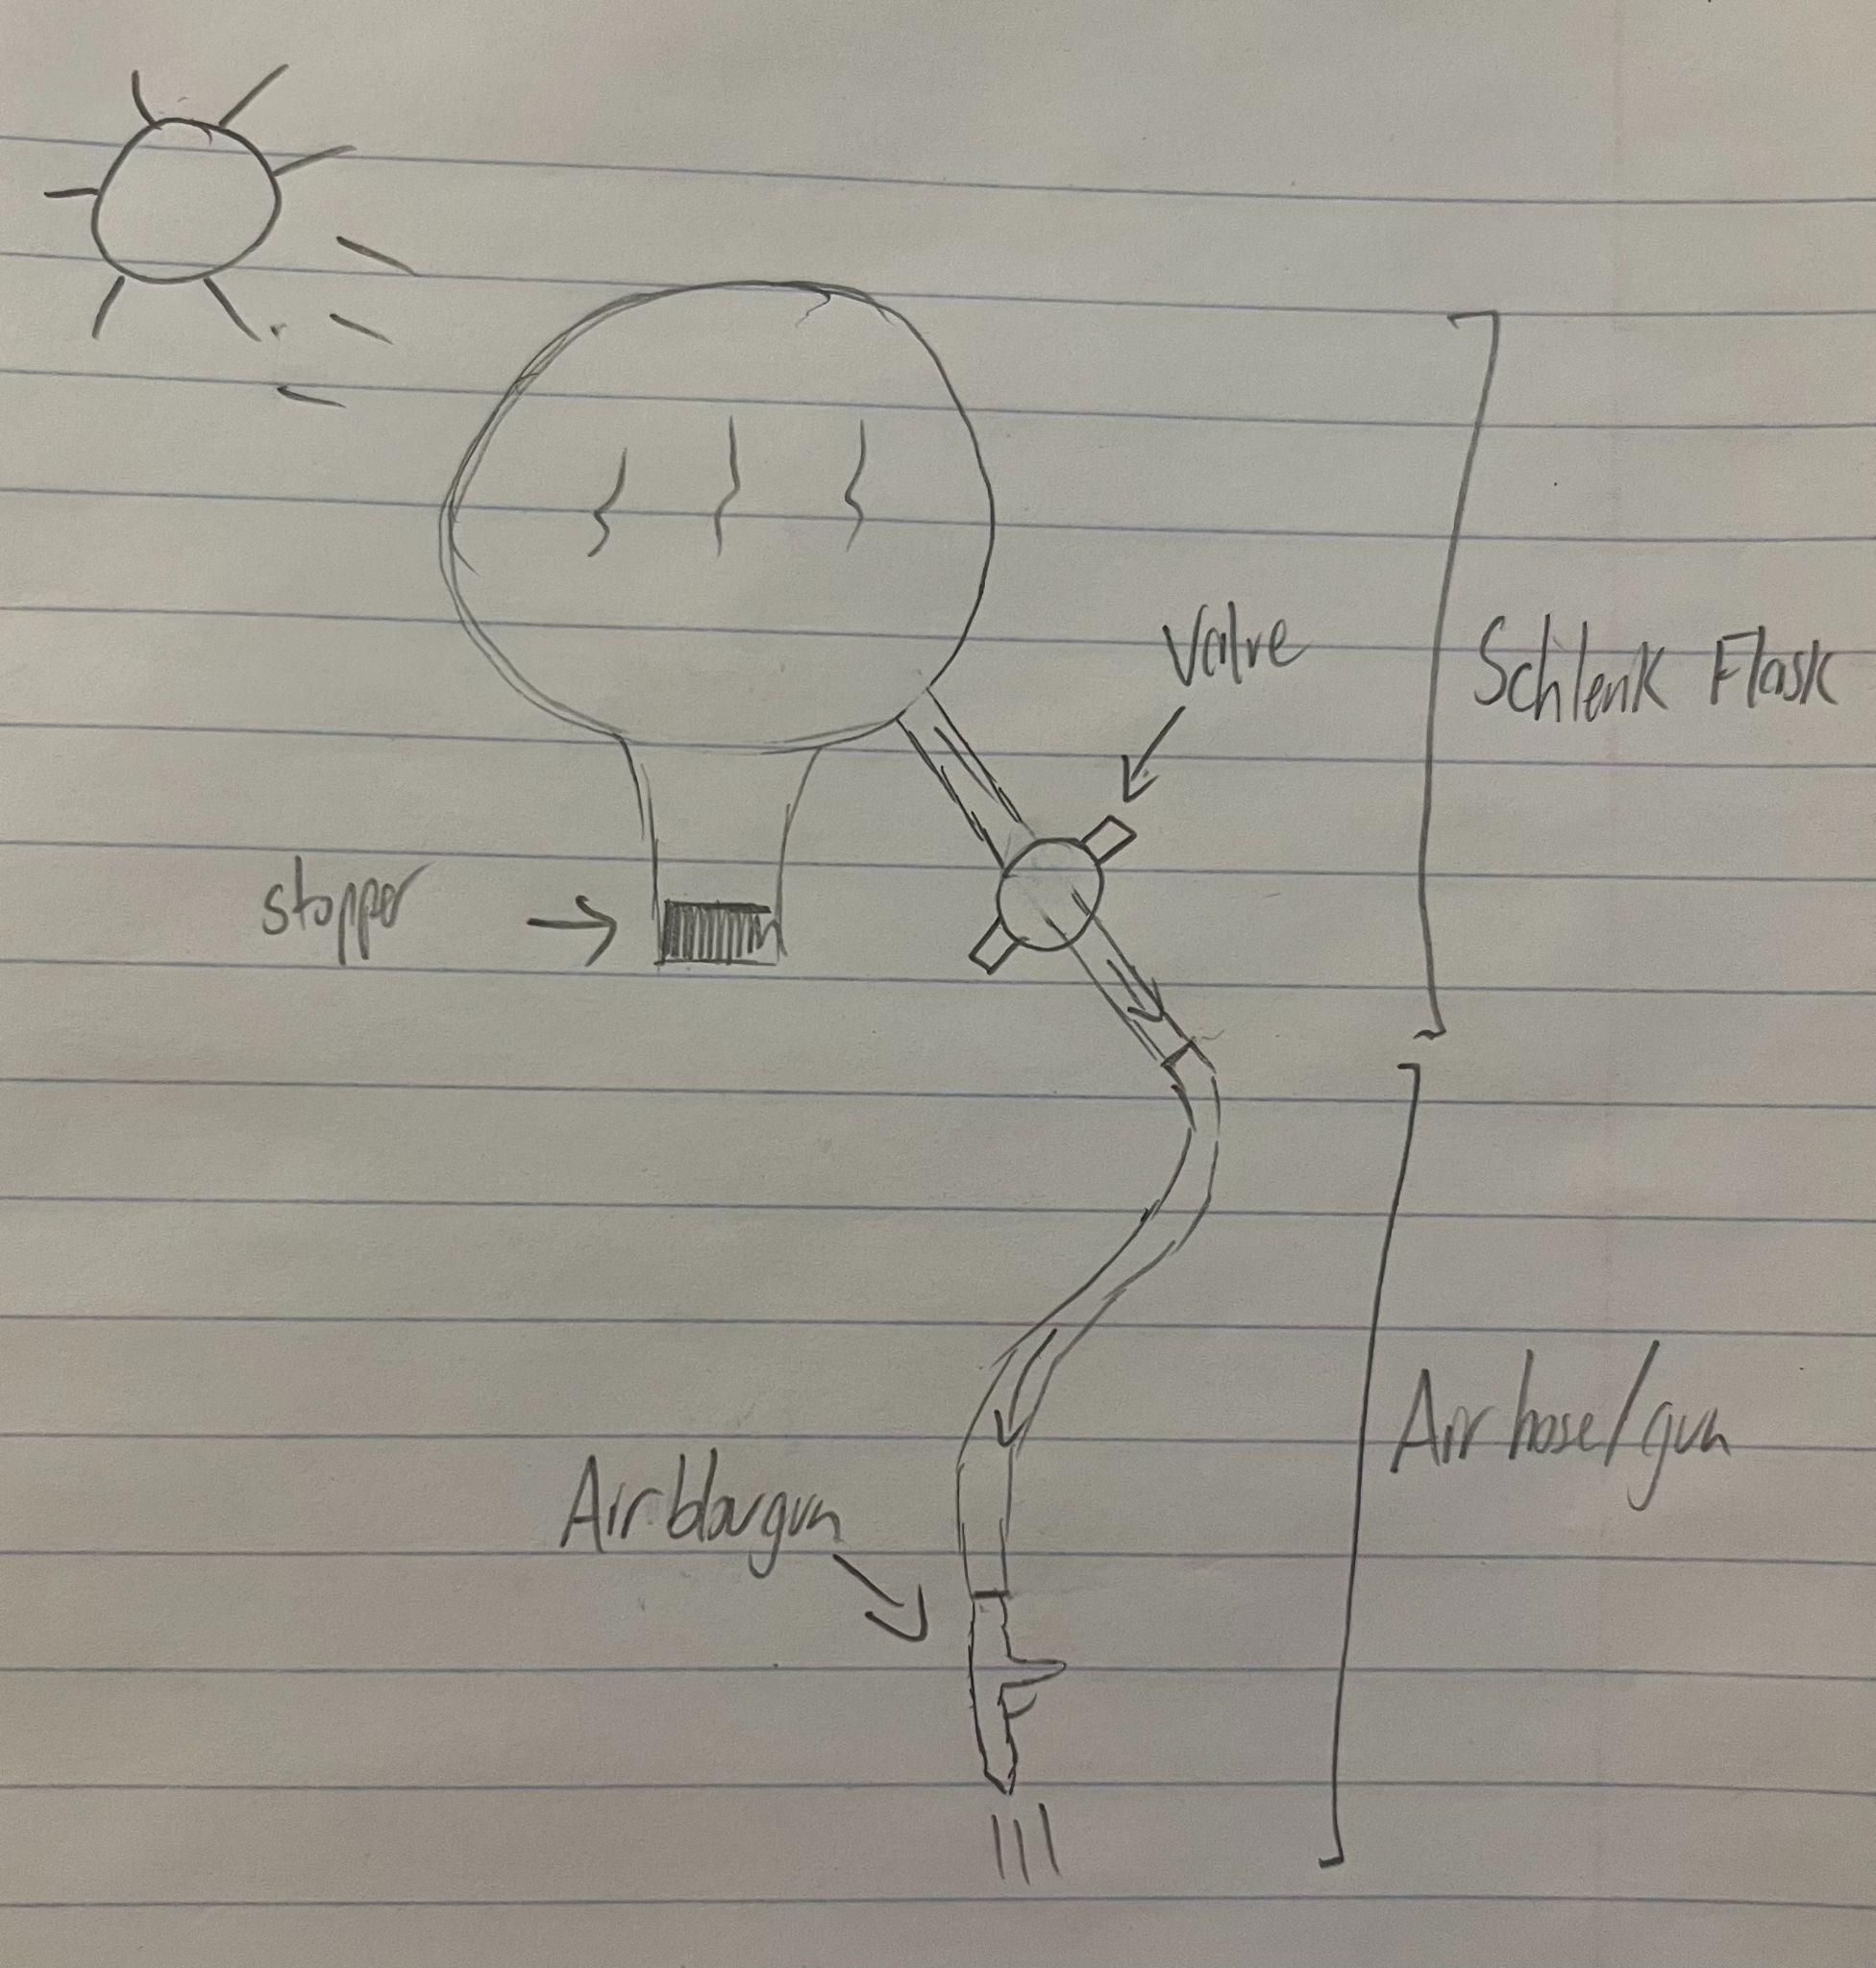 Valve
Schlenk Flask
stopper
Air hose/gun
Air blowgun